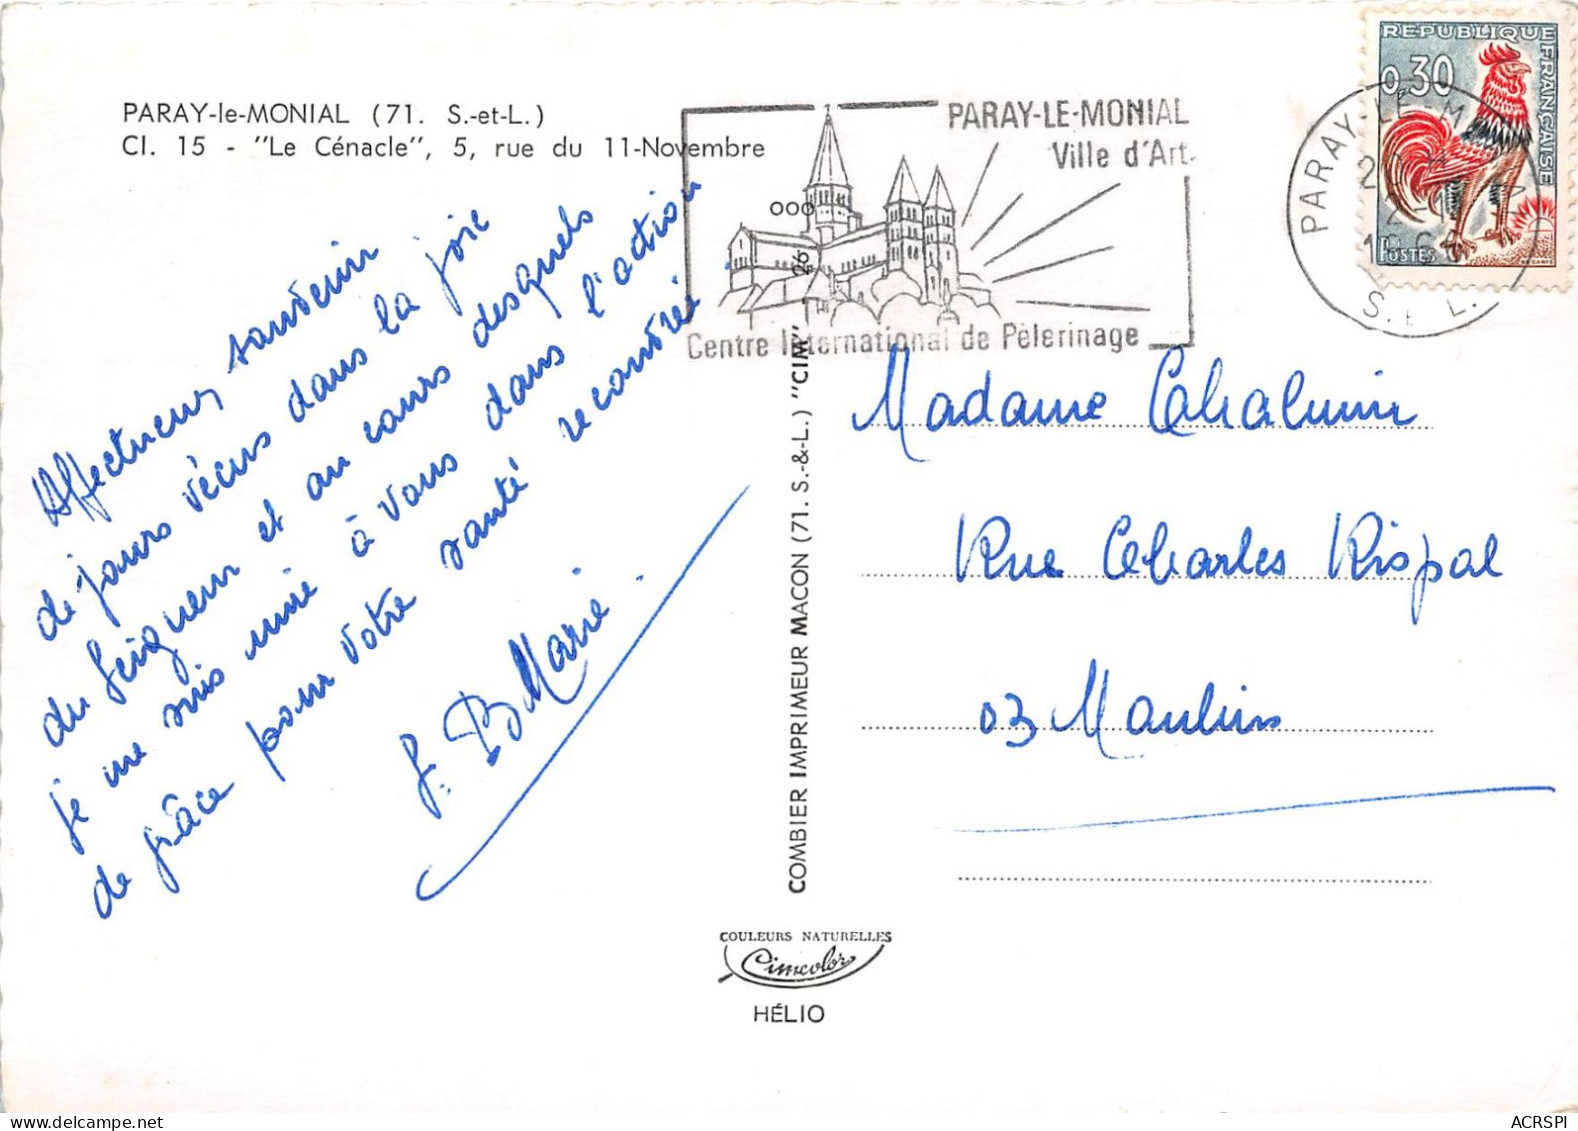 PARAY-le-MONIAL (71. S.-et-L.)
Cl. 15 - "Le Cénacle", 5, rue du 11-Novembre
Affectueux souvenir
de jours vécus dans la joie
du Seigneur et au cours desquels
je me suis unie à vous dans l'action
de grâce pour votre santé recouvrée.
f. B Marie.
PARAY-LE-MONIAL
Ville d'Art.
Centre International de Pèlerinage
REPUBLIQUE FRANÇAISE
0,30
POSTES
PARAY-LE-M
S. L.
Madame
Rue Charles Rispal
03 Moulins
COMBIER IMPRIMEUR MACON (71. S.-&-L.) "CIM"
COULEURS NATURELLES
Cimcolor
HÉLIO
ACRSPI